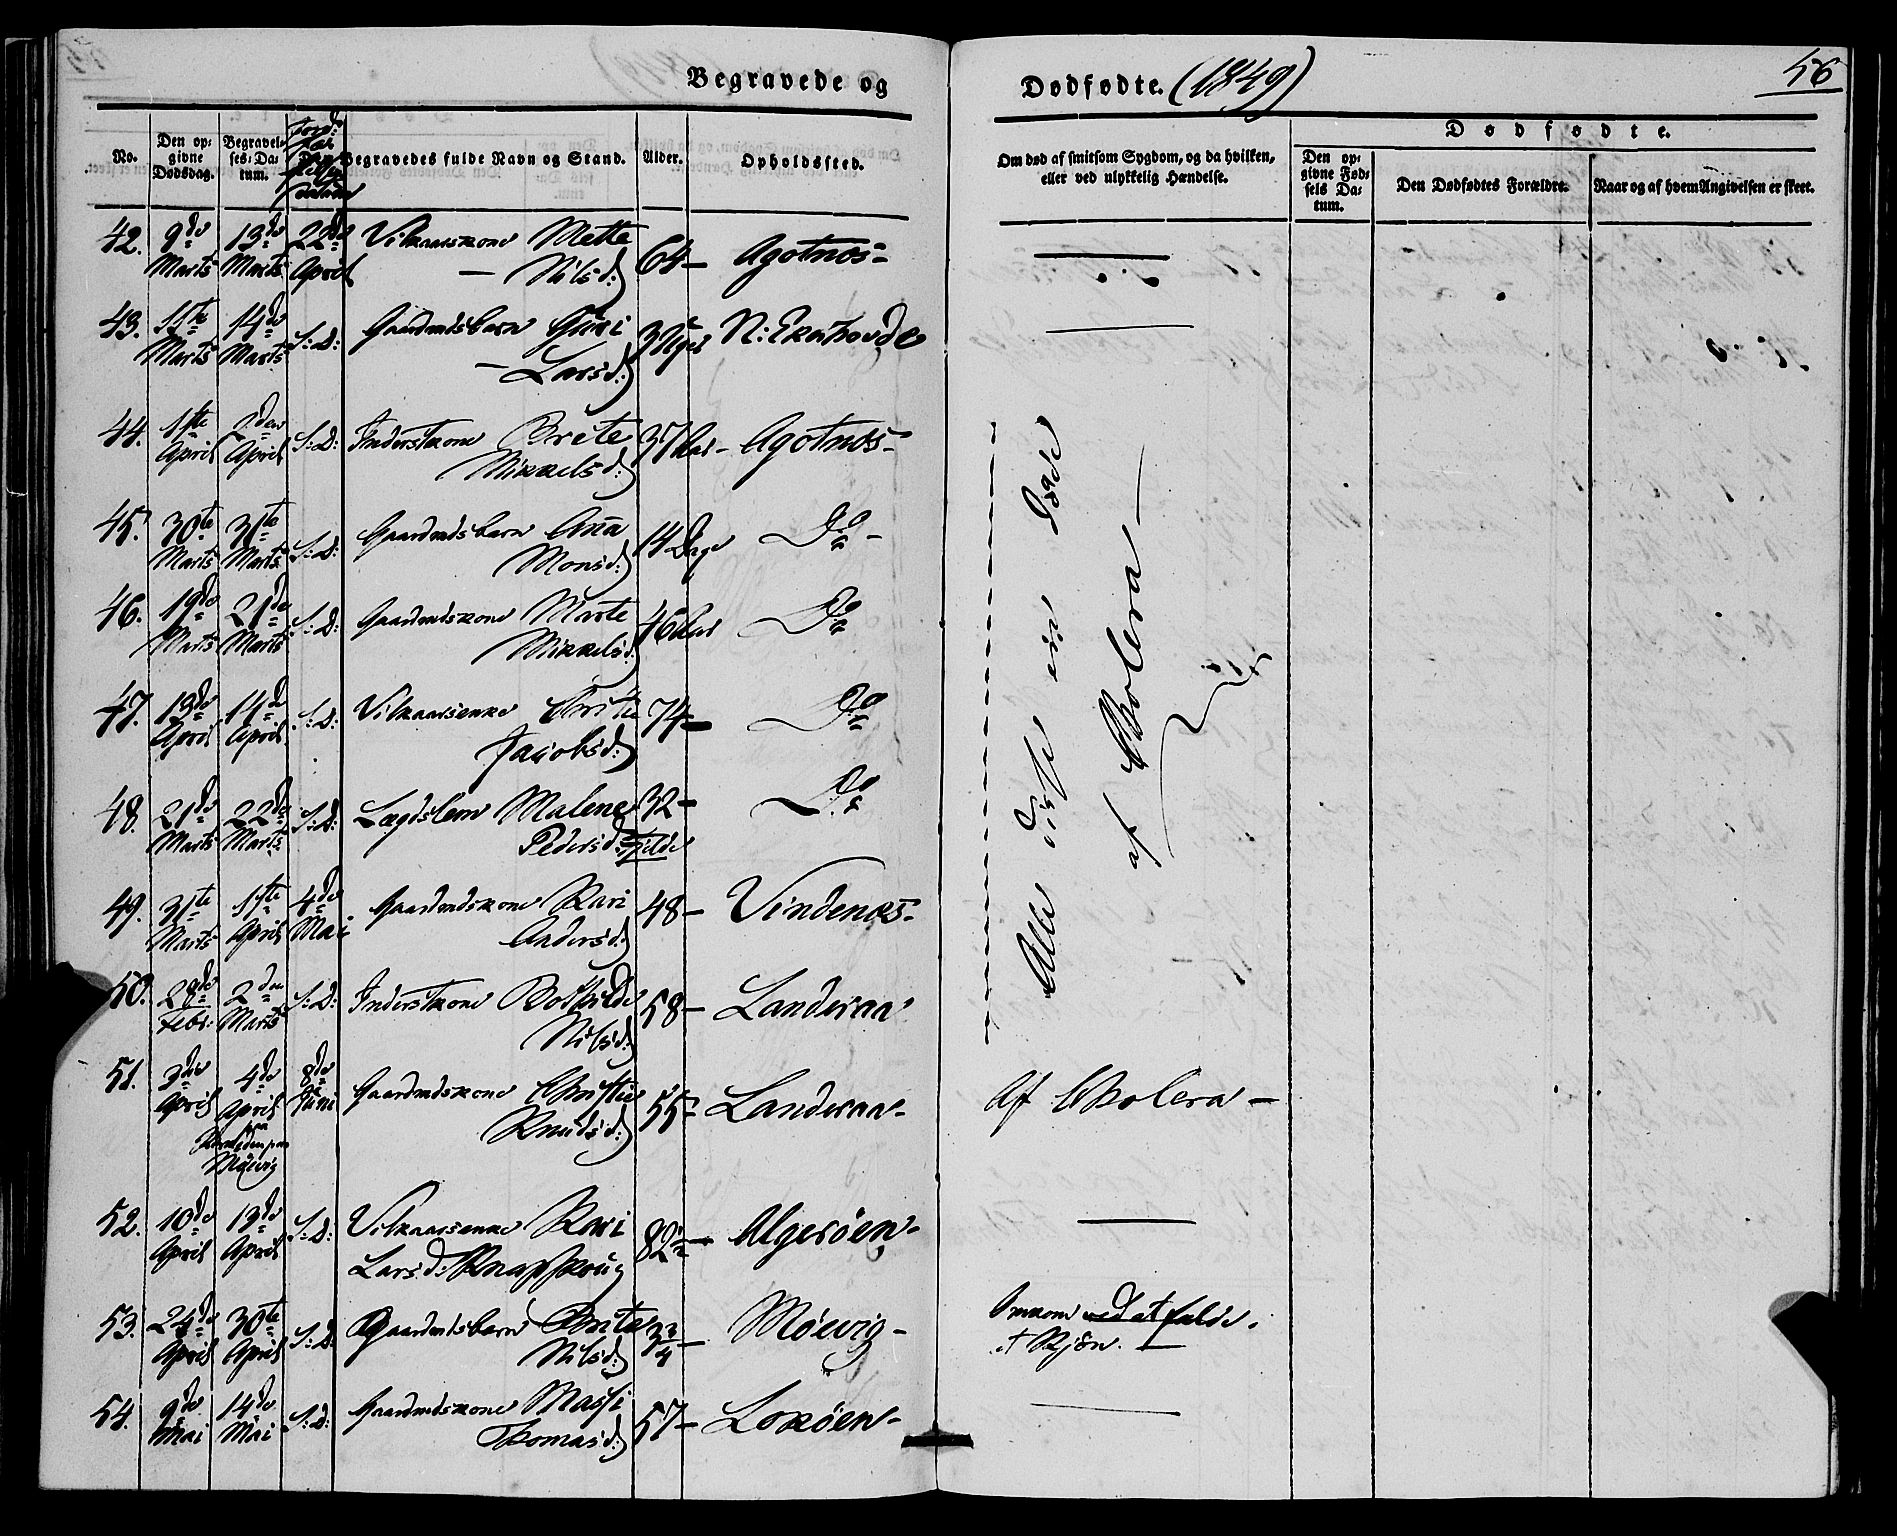 Begravede og Dødfødte. (1849)
56
No.
Den op-
givne
Dødsdag.
Begravel-
ses-Da-
tum.
Den Begravedes fulde Navn og Stand.
Alder.
Opholdssted.
Om død af smitsom Sygdom, og da hvilken,
eller ved ulykkelig Hændelse.
Dødfødte.
Den op-
givne Fød-
sels Da-
tum.
Den Dødfødtes Forældre.
Naar og af hvem Angivelsen er skeet.
42. 9de Marts 13de Marts 22de April Vilkaarskone Mette
Nilsd: 64 - Agotnes -
43. 11te Marts 14de Marts S: D: Gaardmdsbarn Guri
Larsd: 3 Uger N: Ekerhovde
44. 1ste April April S: D: Inderstkone Brite
Mikkelsd: 37 Aar - Agotnes -
45. 30te Marts 31te Marts S: D: Gaardmdsbarn Anna
Monsd: 14 Dage Do -
46. 19de Marts 21de Marts S: D: Gaardmdskone Marte
Mikkelsd: 46 Aar Do
47. 13de April 14de April S: D: Vilkaarsenke Christi
Jacobsd: 74 - Do
48. 21de Marts 22de Marts S: D: Lægdslem Malene
Pedersd: 32 - Do
49. 31te Marts 1ste April 4de Mai Gaardmdskone Kari
Andersd: 48 - Vindenes -
50. 28de Febr: 2den Marts S: D: Inderstkone Bothilde
Nilsd: 58 - Landeraa
Alle disse ere døde
af Cholera -
51. 3die April 4de April 8de Juni Gaardmdskone Christie
Knudsd: 55 - Landeraa - Af Cholera -
paa
Møevig
52. 10de April 13de April S: D: Vilkaarsenke Kari
Larsd: Knapskoug 82 - Algerøen -
53. 24de April 30te April S: D: Gaardmdsbarn Brite
Nilsd: 3/4 - Møevig - Omkom ved at falde
i Sjøen. -
54. 9de Mai 14de Mai S: D: Gaardmdskone Massi
Thomasd: 57 - Lokøen -